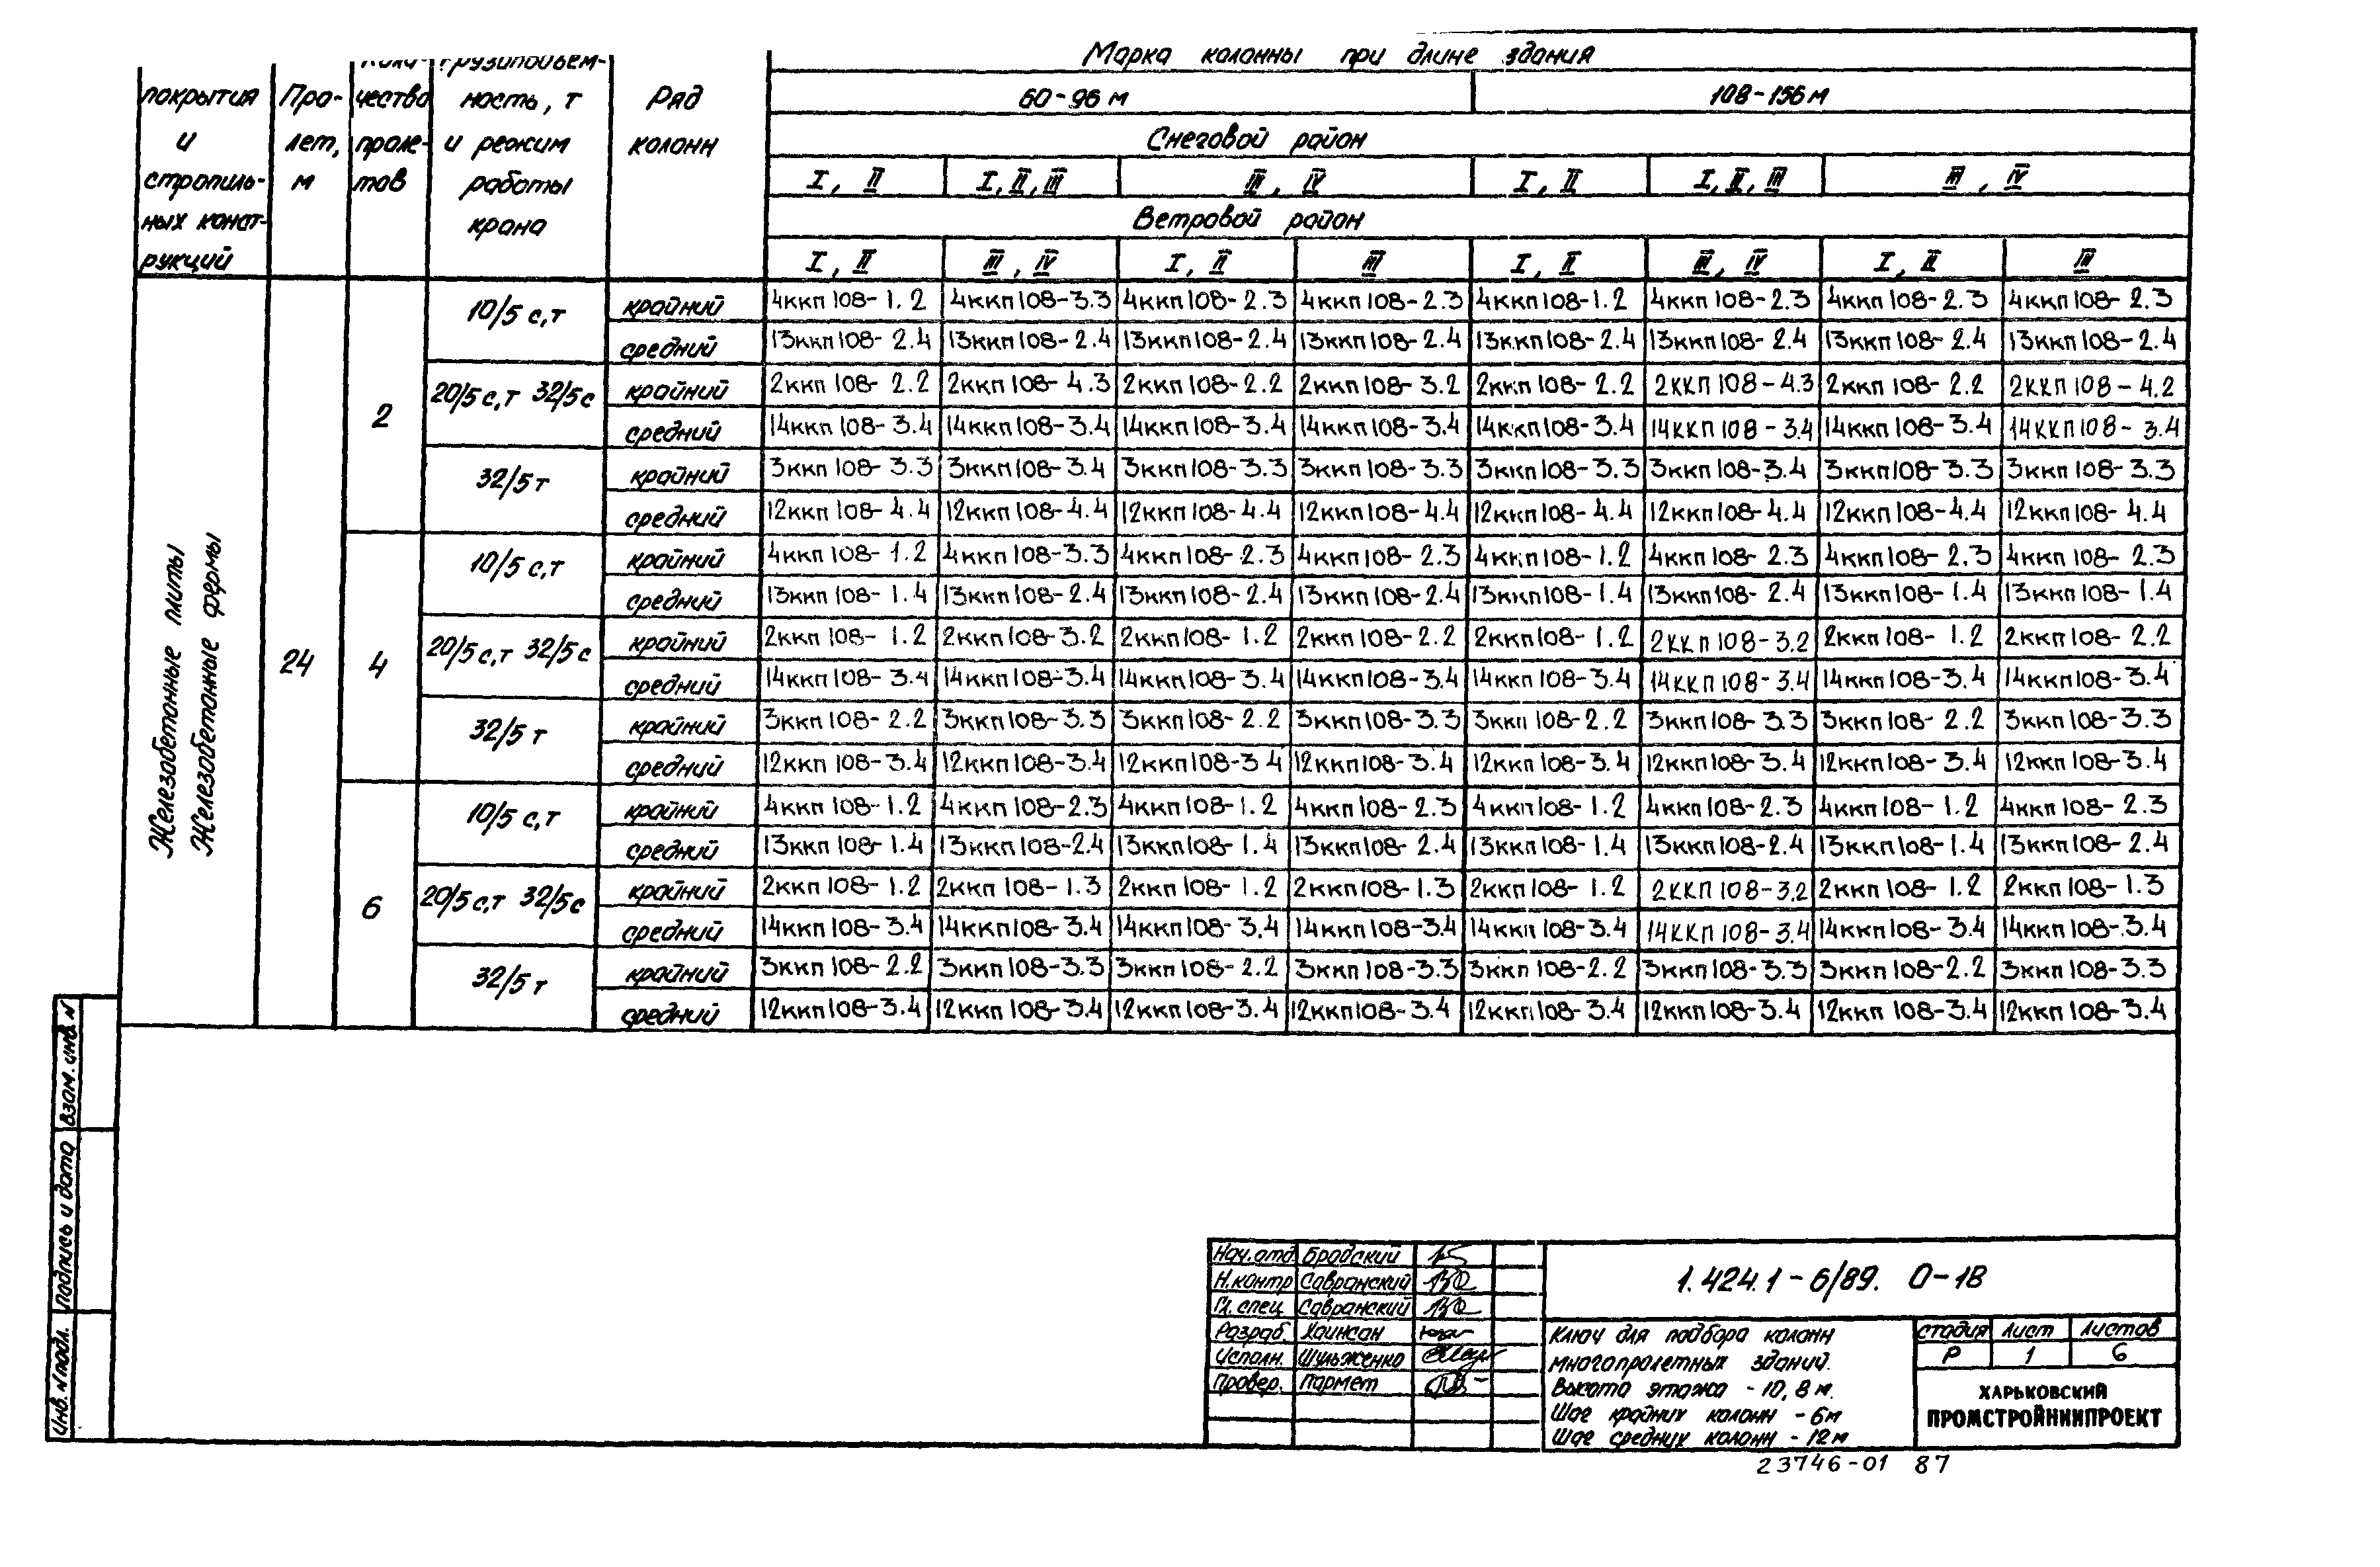 Марка колонны при длине здания
покрытия и стропиль- ных конст- рукций
Про- лет, м
чество проле- тов
ность, т и режим работы крана
Ряд колонн
60-96 м 108-156 м
Снеговой район
I, II I, II, III III, IV I, II I, II, III III, IV
Ветровой район
I, II III, IV I, II III I, II III, IV I, II IV
Железобетонные плиты
Железобетонные фермы
24
2
10/5 с,т крайний 4ккп108-1.2 4ккп108-3.3 4ккп108-2.3 4ккп108-2.3 4ккп108-1.2 4ккп108-2.3 4ккп108-2.3 4ккп108-2.3
средний 13ккп108-2.4 13ккп108-2.4 13ккп108-2.4 13ккп108-2.4 13ккп108-2.4 13ккп108-2.4 13ккп108-2.4 13ккп108-2.4
20/5 с,т 32/5 с крайний 2ккп108-2.2 2ккп108-4.3 2ккп108-2.2 2ккп108-3.2 2ккп108-2.2 2ККП108-4.3 2ккп108-2.2 2ККП108-4.2
средний 14ккп108-3.4 14ккп108-3.4 14ккп108-3.4 14ккп108-3.4 14ккп108-3.4 14ККП108-3.4 14ккп108-3.4 14ККП108-3.4
32/5 т крайний 3ккп108-3.3 3ккп108-3.4 3ккп108-3.3 3ккп108-3.3 3ккп108-3.3 3ккп108-3.4 3ккп108-3.3 3ккп108-3.3
средний 12ккп108-4.4 12ккп108-4.4 12ккп108-4.4 12ккп108-4.4 12ккп108-4.4 12ккп108-4.4 12ккп108-4.4 12ккп108-4.4
4
10/5 с,т крайний 4ккп108-1.2 4ккп108-3.3 4ккп108-2.3 4ккп108-2.3 4ккп108-1.2 4ккп108-2.3 4ккп108-2.3 4ккп108-2.3
средний 13ккп108-1.4 13ккп108-2.4 13ккп108-2.4 13ккп108-2.4 13ккп108-1.4 13ккп108-2.4 13ккп108-1.4 13ккп108-1.4
20/5 с,т 32/5 с крайний 2ккп108-1.2 2ккп108-3.2 2ккп108-1.2 2ккп108-2.2 2ккп108-1.2 2ККП108-3.2 2ккп108-1.2 2ккп108-2.2
средний 14ккп108-3.4 14ккп108-3.4 14ккп108-3.4 14ккп108-3.4 14ккп108-3.4 14ККП108-3.4 14ккп108-3.4 14ккп108-3.4
32/5 т крайний 3ккп108-2.2 3ккп108-3.3 3ккп108-2.2 3ккп108-3.3 3ккп108-2.2 3ккп108-3.3 3ккп108-2.2 3ккп108-3.3
средний 12ккп108-3.4 12ккп108-3.4 12ккп108-3 4 12ккп108-3.4 12ккп108-3.4 12ккп108-3.4 12ккп108-3.4 12ккп108-3.4
6
10/5 с,т крайний 4ккп108-1.2 4ккп108-2.3 4ккп108-1.2 4ккп108-2.3 4ккп108-1.2 4ккп108-2.3 4ккп108-1.2 4ккп108-2.3
средний 13ккп108-1.4 13ккп108-2.4 13ккп108-1.4 13ккп108-2.4 13ккп108-1.4 13ккп108-2.4 13ккп108-1.4 13ккп108-2.4
20/5 с,т 32/5 с крайний 2ккп108-1.2 2ккп108-1.3 2ккп108-1.2 2ккп108-1.3 2ккп108-1.2 2ККП108-3.2 2ккп108-1.2 2ккп108-1.3
средний 14ккп108-3.4 14ккп108-3.4 14ккп108-3.4 14ккп108-3.4 14ккп108-3.4 14ККП108-3.4 14ккп108-3.4 14ккп108-3.4
32/5 т крайний 3ккп108-2.2 3ккп108-3.3 3ккп108-2.2 3ккп108-3.3 3ккп108-2.2 3ккп108-3.3 3ккп108-2.2 3ккп108-3.3
средний 12ккп108-3.4 12ккп108-3.4 12ккп108-3.4 12ккп108-3.4 12ккп108-3.4 12ккп108-3.4 12ккп108-3.4 12ккп108-3.4
Взам. инв. N
Подпись и дата
Инв. N подл.
Нач.отд. Бродский
Н.контр Савранский
Гл.спец Савранский
Разраб. Хаинсан
Исполн. Шульженко
Провер. Пармет
1.424.1-6/89. 0-1В
Ключ для подбора колонн
многопролетных зданий.
Высота этажа - 10,8 м.
Шаг крайних колонн - 6м
Шаг средних колонн - 12м
стадия Лист Листов
Р 1 6
ХАРЬКОВСКИЙ
ПРОМСТРОЙНИИПРОЕКТ
23746-01 87